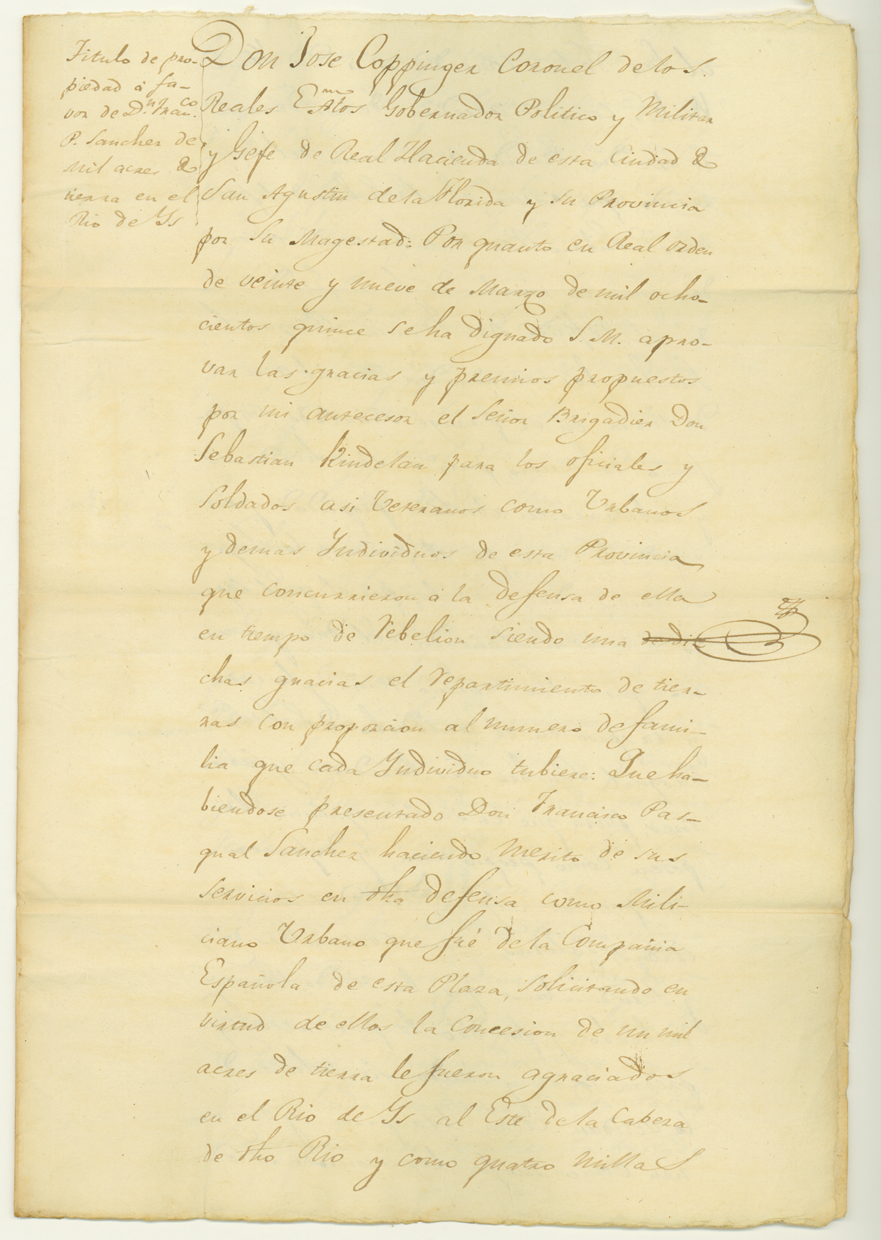 Titulo de pro-
piedad á fa-
vor de D.n Fran.co
P. Sanchez de
mil acres de
tierra en el
Rio de Ys
Don Jose Coppinger Coronel de los
Reales Exer.tos Gobernador Politico y Militar
y Gefe de Real Hacienda de esta Ciudad de
San Agustin de la Florida y su Provincia
por Su Magestad: Por quanto en Real orden
de veinte y nueve de Marzo de mil ocho-
cientos quince se ha dignado S. M. apro-
var las gracias y premios propuestos
por mi antecesor el Señor Brigadier Don
Sebastian Kindelan para los oficiales y
Soldados asi Veteranos como Urbanos
y demas Individuos de esta Provincia
que concurrieron á la defensa de ella
en tiempo de rebelion siendo una de di-
chas gracias el repartimiento de tier-
ras con proporcion al numero de fami-
lia que cada Individuo tubiere: Que ha-
biendose presentado Don Francisco Pas-
qual Sanchez haciendo merito de sus
Servicios en dha defensa como Mili-
ciano Urbano que fué de la Compañia
Española de esta Plaza, solicitando en
virtud de ellos la concesion de un mil
acres de tierra le fueron agraciados
en el Rio de Ys al Este de la Cabeza
de dho Rio y como quatro millas